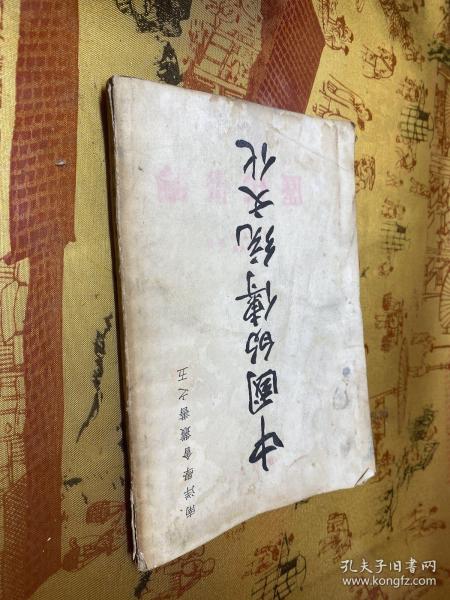 中國的傳統文化
南洋學會叢書之五
孔夫子旧书网
www.kongfz.com